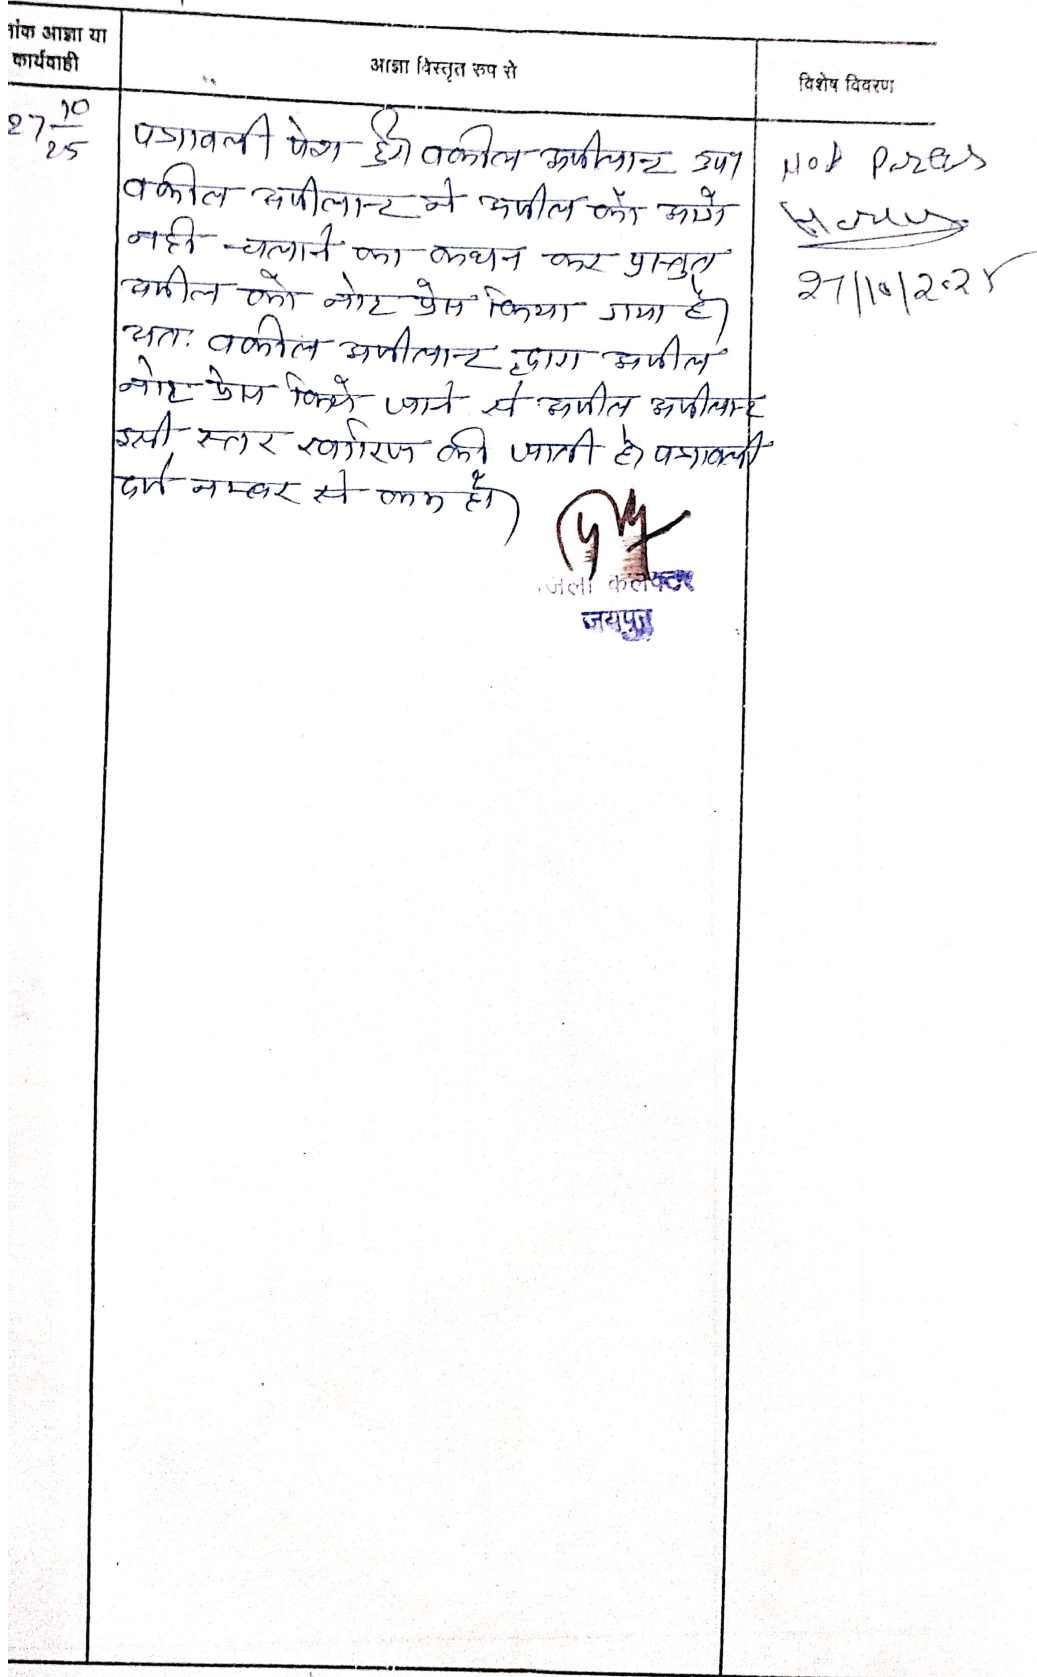 नांक आज्ञा या
कार्यवाही
आज्ञा विस्तृत रुप से
विशेष विवरण
27 10/25
पत्रावली पेश हुई। वकील अपीलान्ट उप।
वकील अपीलान्ट ने अपील को आगे
नही चलाने का कथन कर प्रस्तुत
अपील को नोट प्रेस किया गया है।
अतः वकील अपीलान्ट द्वारा अपील
नोट प्रेस किये जाने से अपील अपीलान्ट
इसी स्तर खारिज की जाती है। पत्रावली
दर्ज नम्बर से कम हो।
जिला कलक्टर
जयपुर
Not Press
27/10/2025